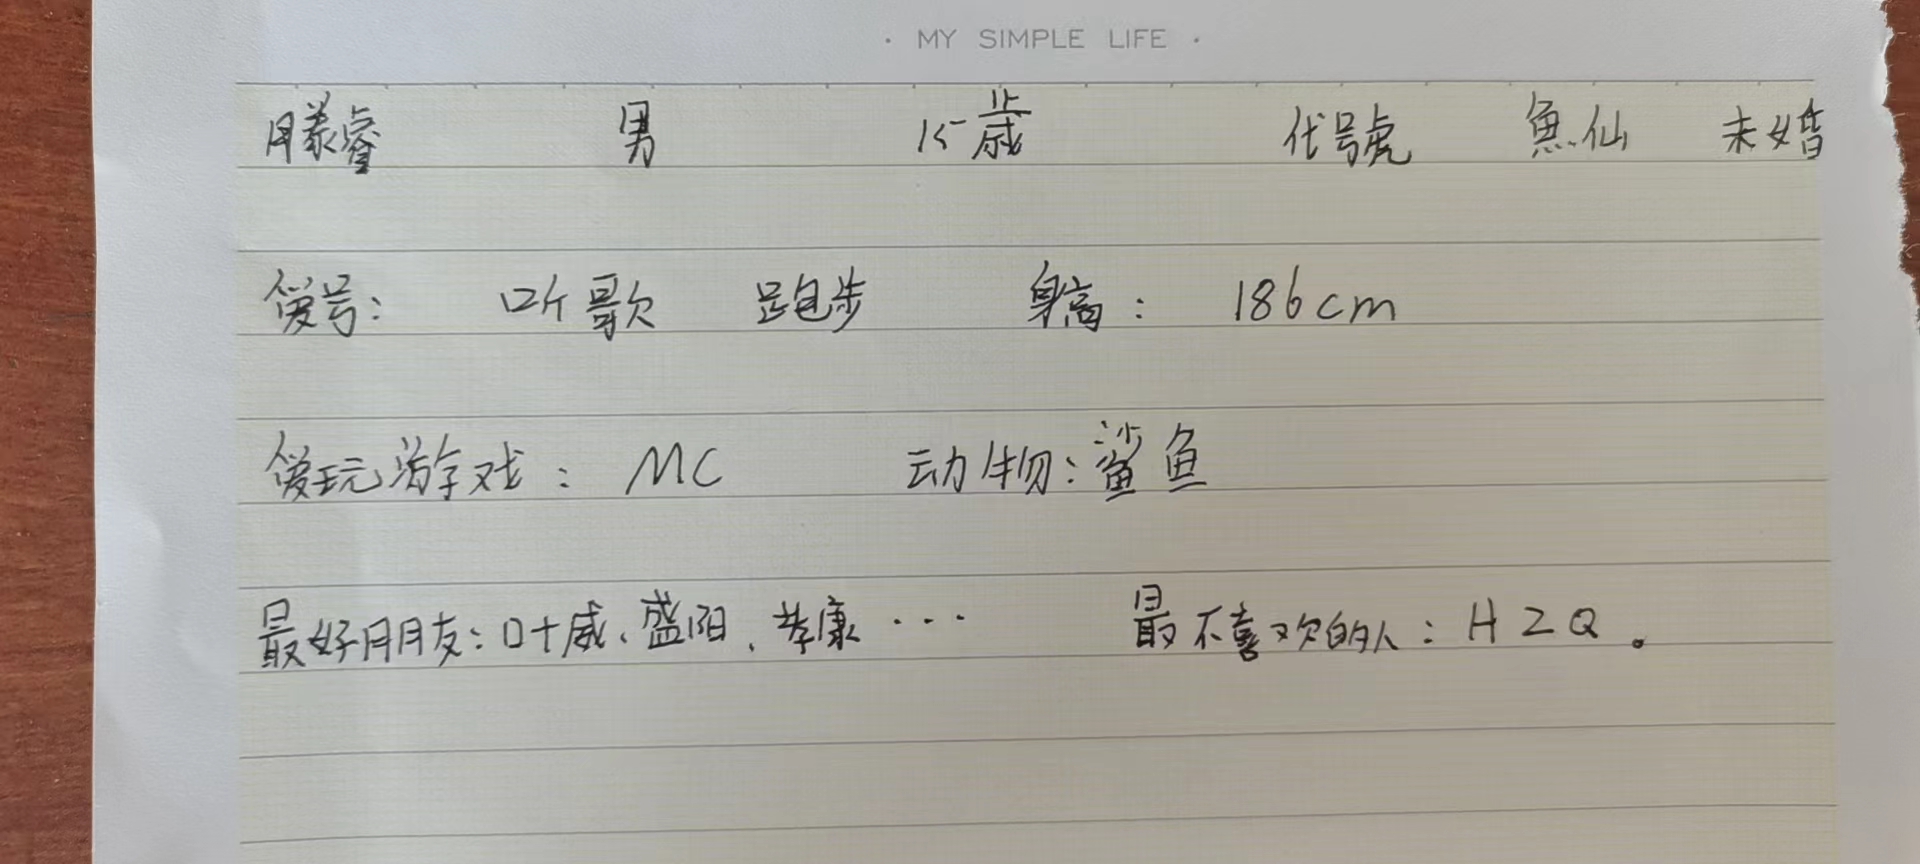 · MY SIMPLE LIFE ·
滕睿 男 15歳 代号虎 魚仙 未婚
爱号： 听歌 跑步 身高： 186cm
爱玩游戏： MC 动物：鲨鱼
最好朋友：叶威、盛阳、孝康··· 最不喜欢的人：HZQ。